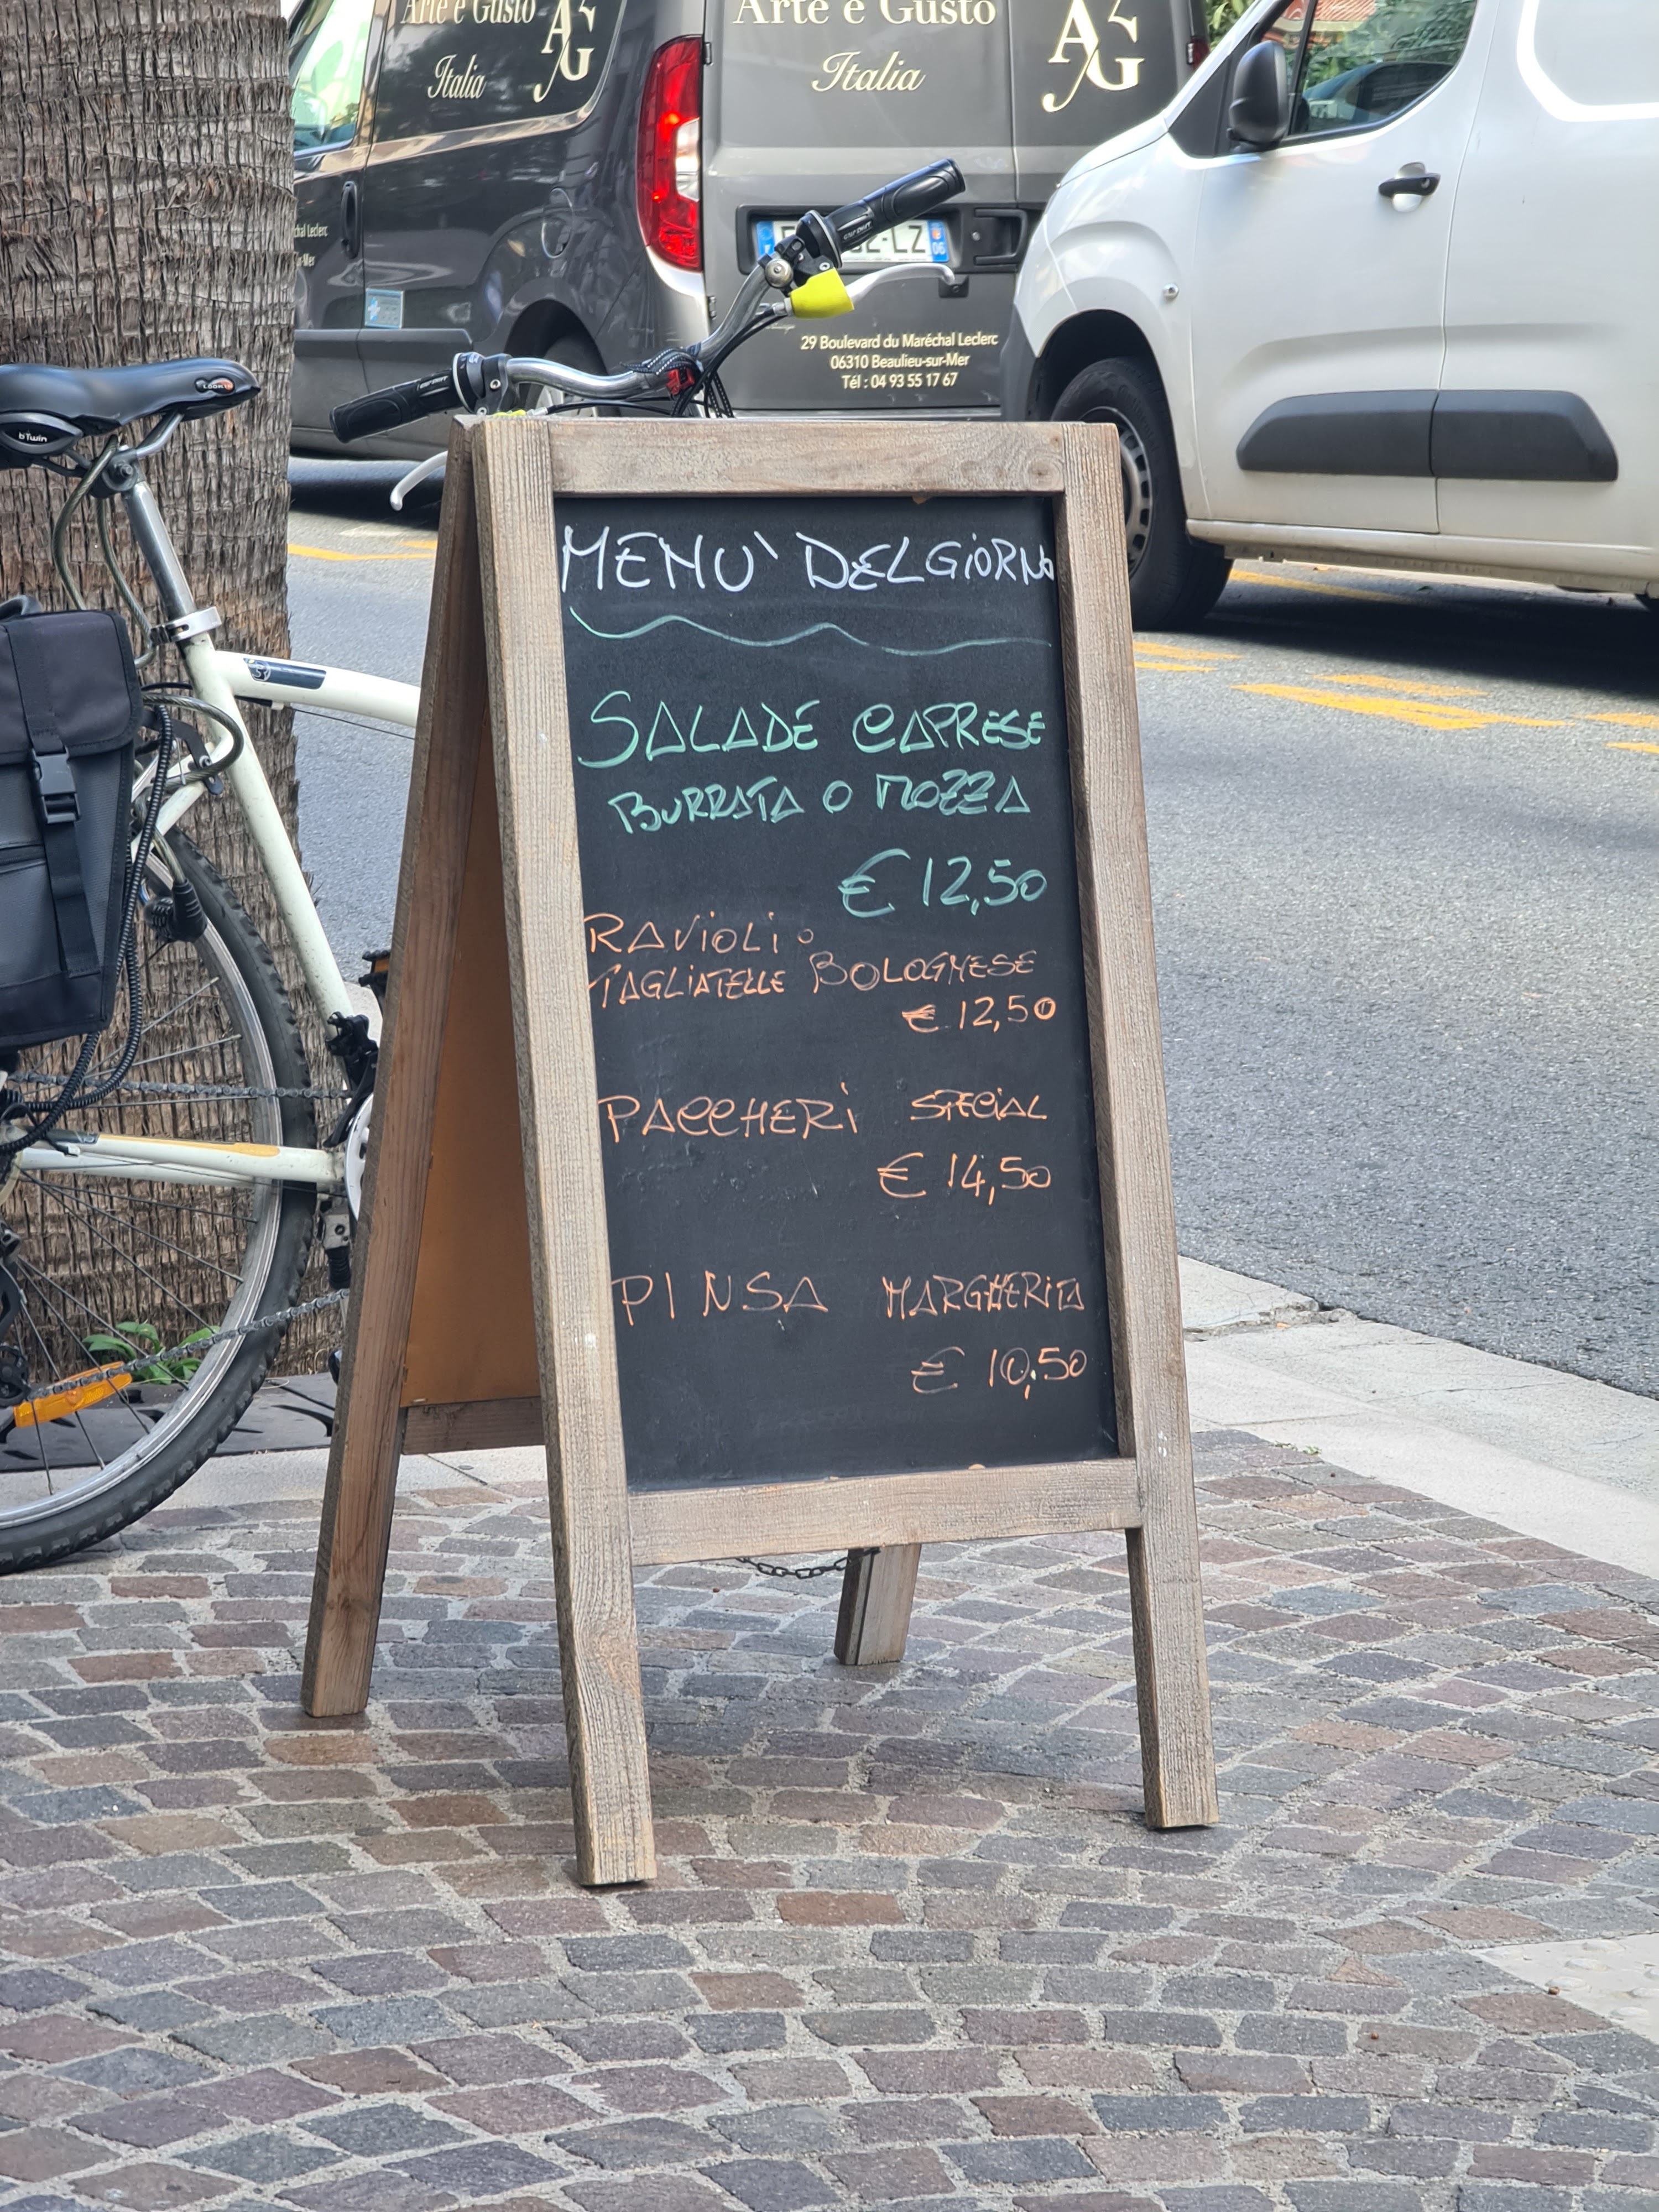 Arte e Gusto
Italia
AG
Arte e Gusto
Italia
AG
LZ
06
29 Boulevard du Maréchal Leclerc
06310 Beaulieu-sur-Mer
Tél : 04 93 55 17 67
b'Twin
MENU' DEL GiORNO
SALADE CAPRESE
BURRATA O MOZZA
€ 12,50
RAViOLi O
TAGLiATELLE BOLOGNESE
€ 12,50
PACCHERi SPECiAL
€ 14,50
PINSA MARGHERiTA
€ 10,50